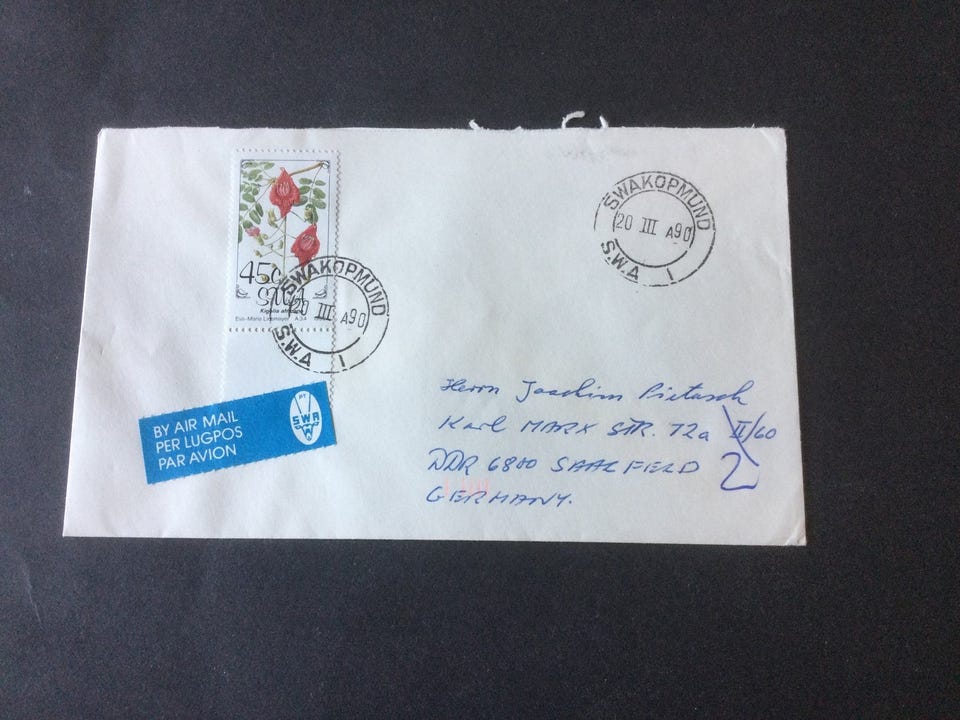 45c
SWA
Kigelia africana
SWAKOPMUND
20 III A90
S.W.A 1
SWAKOPMUND
20 III A90
S.W.A 1
BY AIR MAIL
PER LUGPOS
PAR AVION
SWA
Herrn Joachim Pietzsch
Karl MARX STR. 72a II/60
DDR 6800 SAALFELD 2
GERMANY.